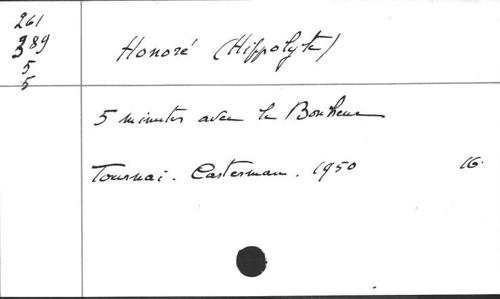 261
389
5
5
Honoré (Hippolyte)
5 minutes avec le Bonheur
Tournai. Casterman. 1950 16.